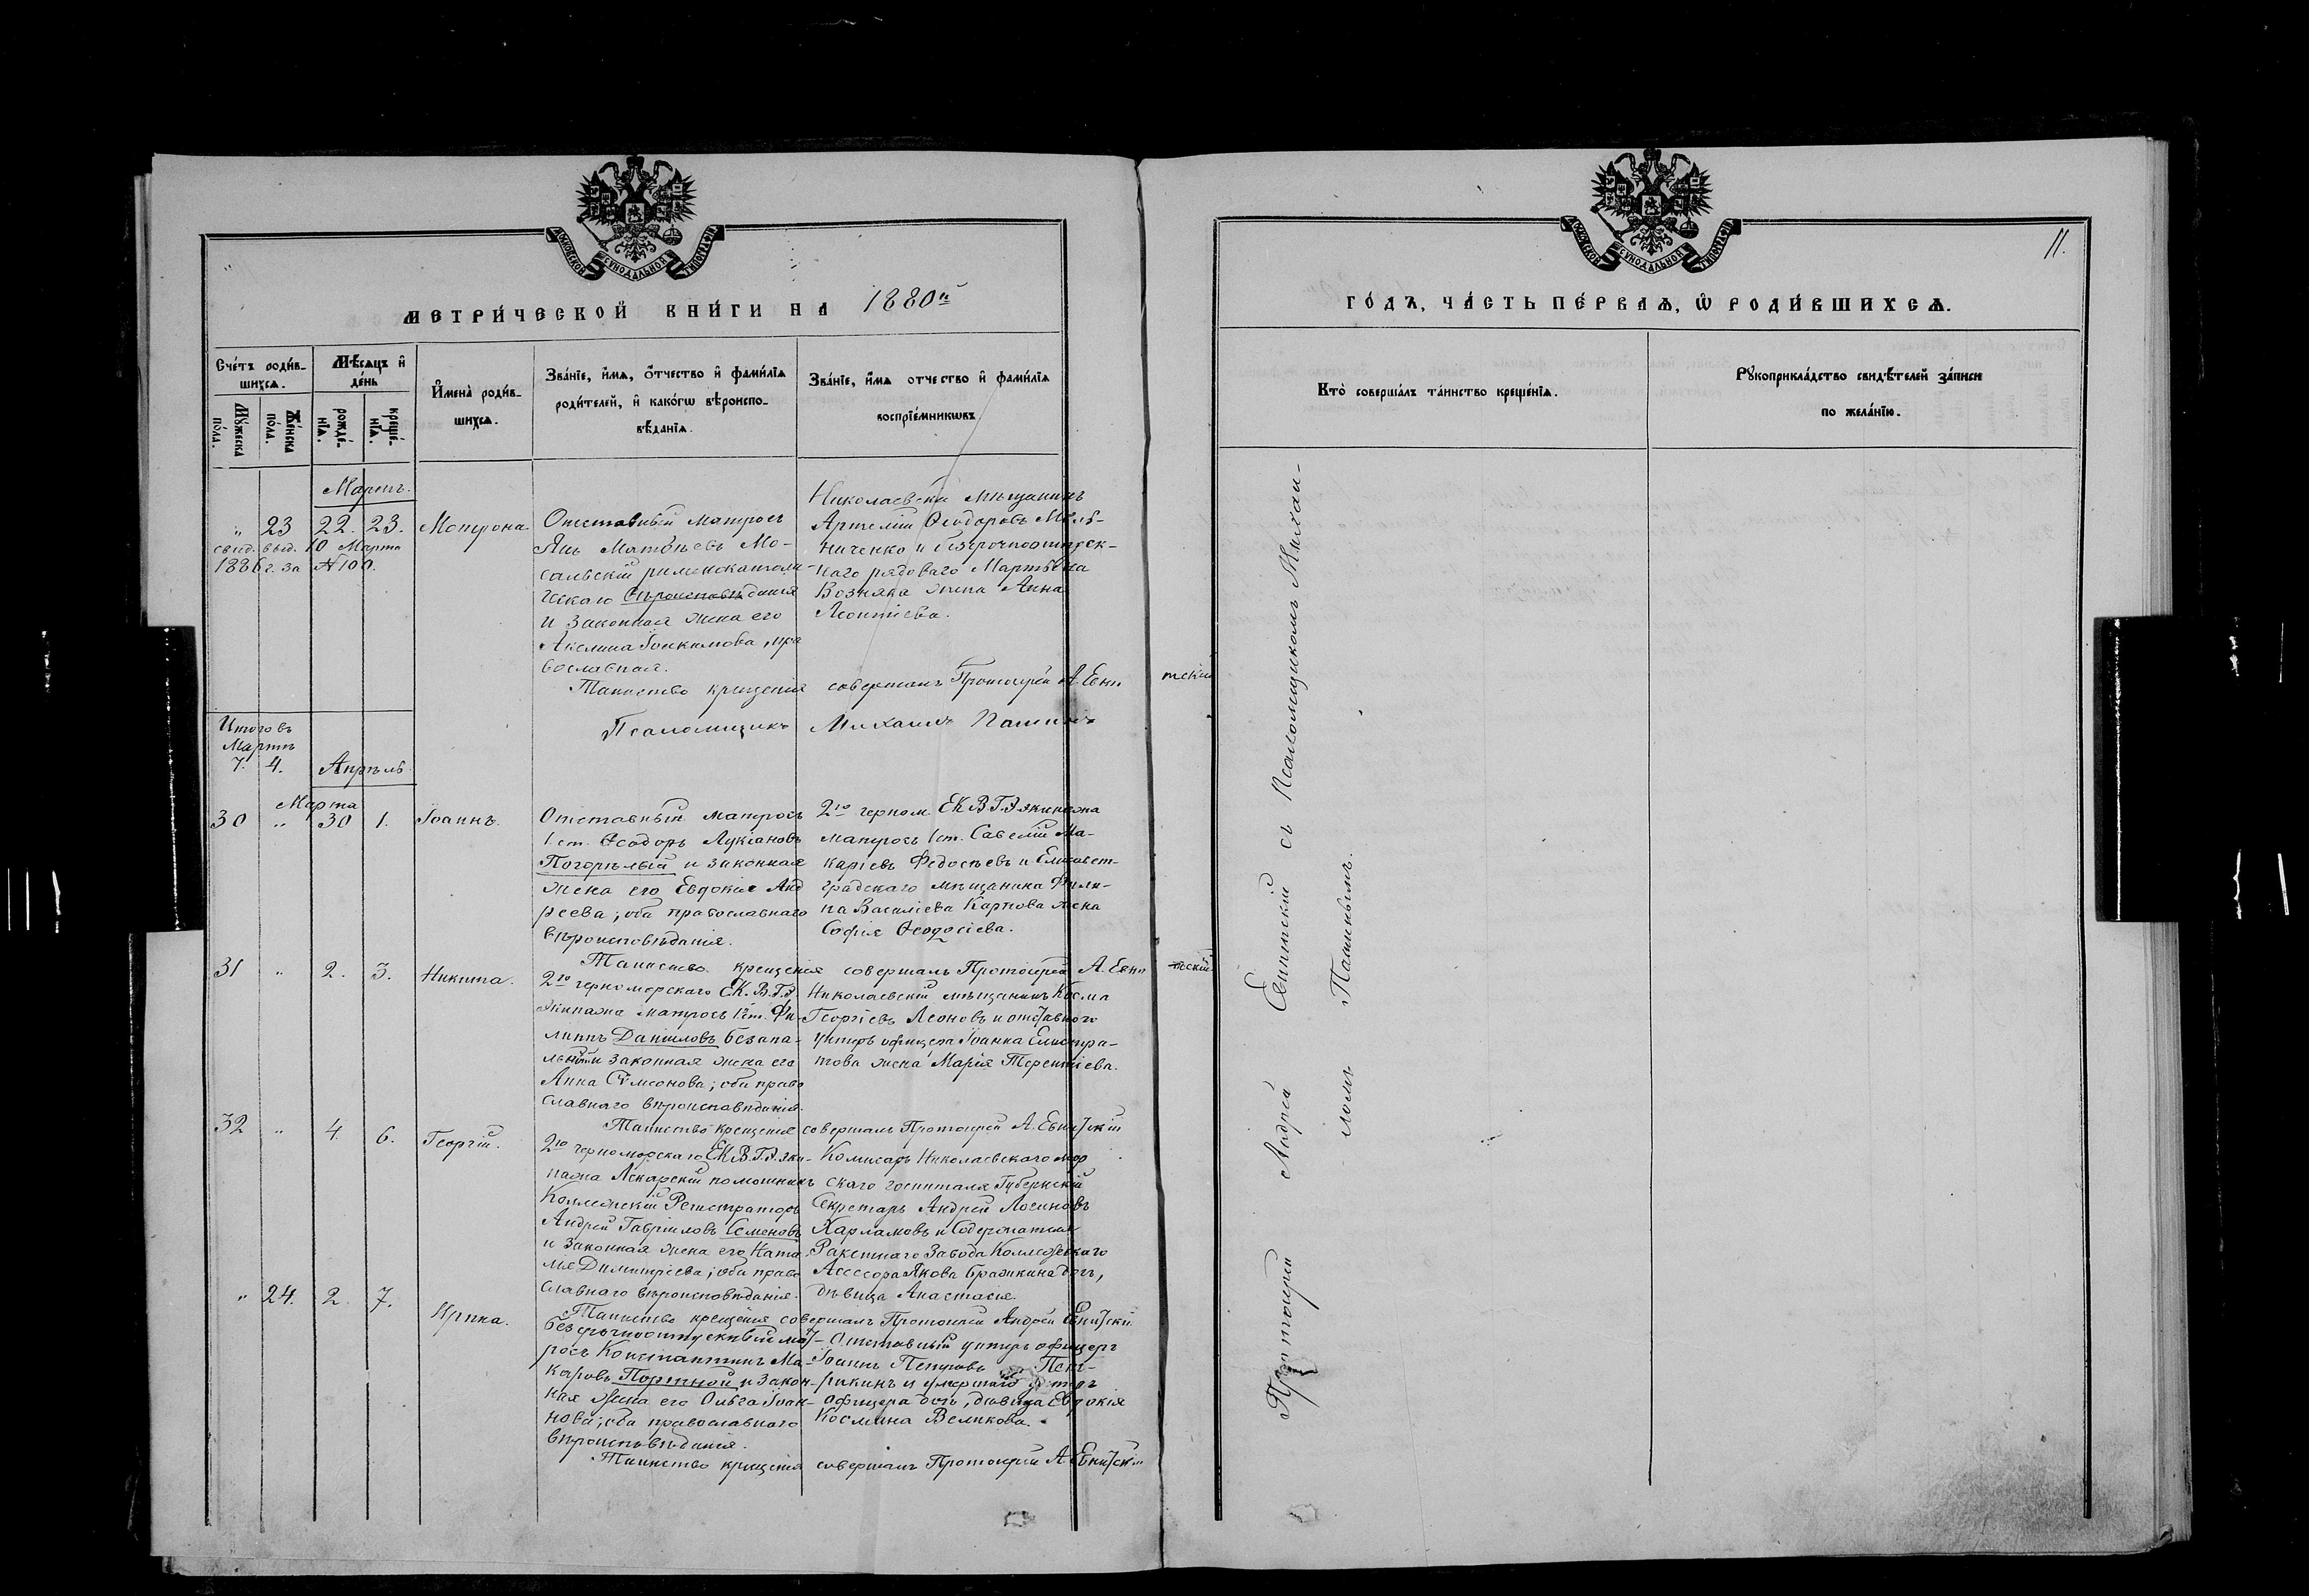 МОСКОВСКОЙ СѴНОДАЛЬНОЙ ТИПОГРАФІИ
МЕТРИ́ЧЕСКОЙ КНИ́ГИ НА 1880й
Сче́тъ роди́в-
шихсѧ.
Мꙋ́жеска
по́ла.
Же́нска
по́ла.
Мѣ́сѧцъ и҆
де́нь
рожде́-
нїѧ.
креще́-
нїѧ.
И҆мена̀ роди́в-
шихсѧ.
Зва́нїе, и҆́мѧ, ѻ҆́тчество и҆ фами́лїѧ
роди́телей, и҆ како́гѡ вѣроиспо-
вѣ́данїѧ.
Зва́нїе, и҆́мѧ отчество и҆ фами́лїѧ
воспрїе́мникѡвъ.
Мартъ.
„ 23 22. 23. Мотрона.
свид. выд. 10 Марта
1886 г. за №100.
Отставный матросъ
Янъ Матвѣевъ Мо-
сальскій римскокатоли-
ческаго вѣроисповѣданія
и законная жена его
Акелина Іоакимова, пра
вославная.
Николаевскій мѣщанинъ
Артемій Ѳеодоровъ Мель-
ниченко и безсрочноотпуск-
наго рядоваго Мартына
Возняка жена Анна
Леонтіева.
Таинство крещенія совершалъ Протоіерей А. Евни тскій
Псаломщикъ Михаилъ Пашинъ
Итого въ
Мартѣ
7. 4.
Апрѣль
Марта
30 „ 30 1. Іоаннъ.
Отставный матросъ
1 ст. Ѳеодоръ Лукіановъ
Погорѣлый и законная
жена его Евдокія Анд
реева; оба православнаго
вѣроисповѣданія.
2го черном. ЕКВГЭ экипажа
матросъ 1 ст. Савелій Ма-
каріевъ Федосѣевъ и Елисавет-
градскаго мѣщанина Фили-
па Василіева Карпова жена
Софія Ѳеодосіева.
Таинство крещенія совершалъ Протоіерей А. Евни тскій
31 „ 2. 3. Никита.
2го черноморскаго Е.К.В.Г.Э
экипажа матросъ 1й ст. Фи-
липпъ Даниловъ Безпа-
лый и законная жена его
Анна Сѵмеонова; оба право
славнаго вѣроисповѣданія.
Николаевскій мѣщанинъ Косма
Георгіевъ Леоновъ и отставного
унтеръ офицера Іоанна Елистра-
това жена Марія Терентіева.
Таинство крещенія совершалъ Протоіерей А. Евнитскій
32 „ 4. 6. Георгій.
2го черноморскаго ЕКВ.Г.Э. эки-
пажа Лекарскій помошникъ
Коллежскій Регистраторъ
Андрей Гавріиловъ Семеновъ
и законная жена его Ната-
лія Димитріева; оба право
славнаго вѣроисповѣданія.
Комисаръ Николаевскаго мор
скаго госпиталя Губернскій
Секретарь Андрей Логиновъ
Харламовъ и
Ракетнаго Завода Коллежскаго
Асессора Якова Бражкина дочь,
дѣвица Анастасія.
Таинство крещенія совершалъ Протоіерей Андрей Евнитскій.
„ 24. 2. 7. Ирина.
безсрочноотпускный мат-
росъ Константинъ Ма-
каровъ Портной и закон-
ная жена его Ольга Іоан-
нова; оба православнаго
вѣроисповѣданія.
Отставный унтеръ офицеръ
Іоаннъ Петровъ Пет-
рикинъ и умершаго унтеръ
офицера дочь, дѣвица Евдокія
Космина Великова.
Таинство крещенія совершалъ Протоіерей А Евнитскій
МОСКОВСКОЙ СѴНОДАЛЬНОЙ ТИПОГРАФІИ
11.
ГО́ДЪ, ЧА́СТЬ ПЕ́РВАѦ, Ѡ҆ РОДИ́ВШИХСѦ.
Кто̀ соверша́лъ та́инство креще́нїѧ.
Рꙋкоприкла́дство свидѣ́телей за́писи
по жела́нїю.
Протоіерей Андрей Евнитскій съ Псаломщикомъ Михаи-
ломъ Пашинымъ.